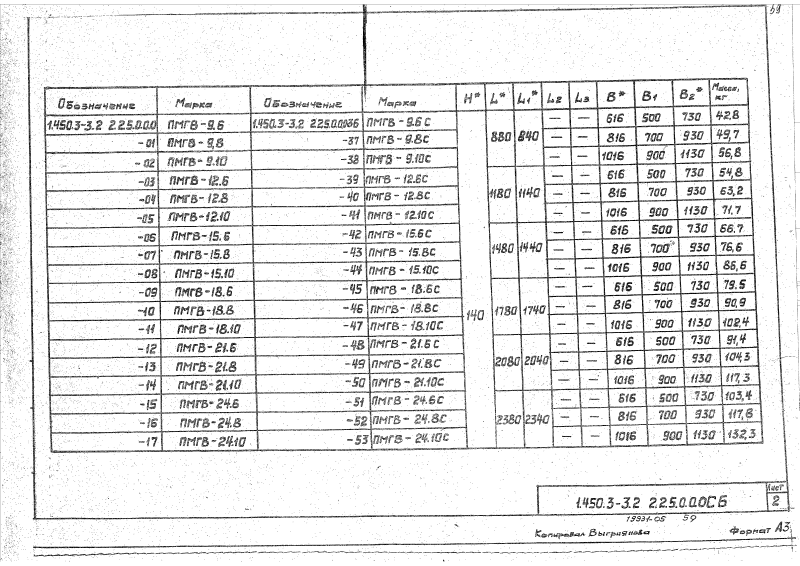 59
Обозначение Марка Обозначение Марка H* L* L1* L2 L3 B* B1 B2* Масса, кг
1.450.3-3.2 2.2.5.0.0.0 ПМГВ-9.6 1.450.3-3.2 2.2.5.0.0.0-36 ПМГВ-9.6С 140 880 840 — — 616 500 730 42,8
-01 ПМГВ-9.8 -37 ПМГВ-9.8С — — 816 700 930 49,7
-02 ПМГВ-9.10 -38 ПМГВ-9.10С — — 1016 900 1130 56,8
-03 ПМГВ-12.6 -39 ПМГВ-12.6С 1180 1140 — — 616 500 730 54,8
-04 ПМГВ-12.8 -40 ПМГВ-12.8С — — 816 700 930 63,2
-05 ПМГВ-12.10 -41 ПМГВ-12.10С — — 1016 900 1130 71,7
-06 ПМГВ-15.6 -42 ПМГВ-15.6С 1480 1440 — — 616 500 730 66,7
-07 ПМГВ-15.8 -43 ПМГВ-15.8С — — 816 700 930 76,6
-08 ПМГВ-15.10 -44 ПМГВ-15.10С — — 1016 900 1130 86,6
-09 ПМГВ-18.6 -45 ПМГВ-18.6С 1780 1740 — — 616 500 730 79.5
-10 ПМГВ-18.8 -46 ПМГВ-18.8С — — 816 700 930 90,9
-11 ПМГВ-18.10 -47 ПМГВ-18.10С — — 1016 900 1130 102,4
-12 ПМГВ-21.6 -48 ПМГВ-21.6С 2080 2040 — — 616 500 730 91,4
-13 ПМГВ-21.8 -49 ПМГВ-21.8С — — 816 700 930 104,3
-14 ПМГВ-21.10 -50 ПМГВ-21.10С — — 1016 900 1130 117,3
-15 ПМГВ-24.6 -51 ПМГВ-24.6С 2380 2340 — — 616 500 730 103,4
-16 ПМГВ-24.8 -52 ПМГВ-24.8С — — 816 700 930 117,8
-17 ПМГВ-24.10 -53 ПМГВ-24.10С — — 1016 900 1130 132,3
1.450.3-3.2 2.2.5.0.0.0СБ Лист 2
19931-05 59
Копировал Выгриянова Формат А3